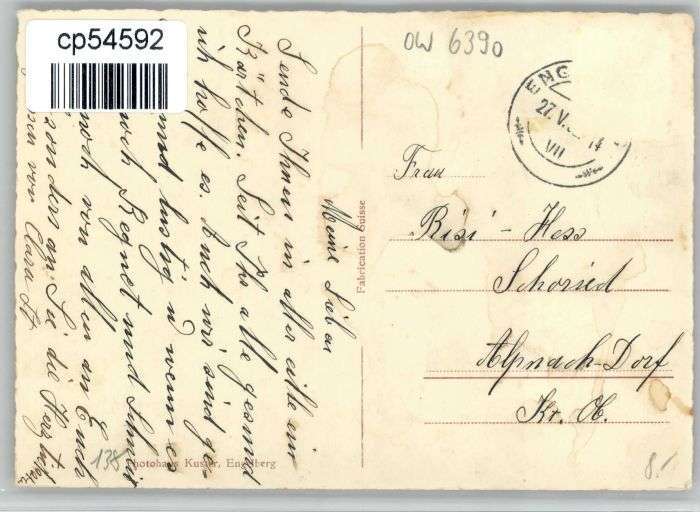 cp54592
OW 6390
ENG
27. V.
14
VII
Frau
Risi - Hess
Schoried
Alpnach-Dorf
Kt. O.
Fabrication Suisse
Meine Lieben
Sende Ihnen in aller eile ein
Kärtchen. Seit Ihr alle gesund
ich hoffe es. Auch wir sind ge-
und lustig u wenn es
noch Regnet und Schneit
noch von allen an Euch
an Sie die Herzlich
von Clara
138
Photohaus Kuster, Engelberg
8.-